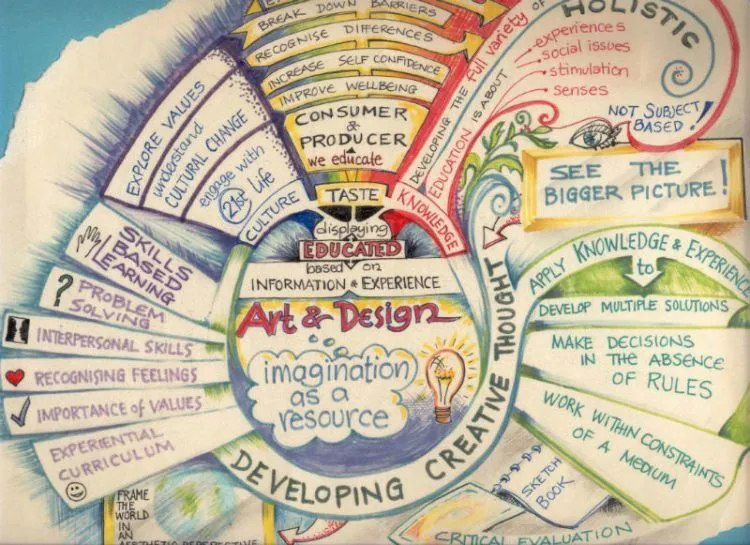 BREAK DOWN BARRIERS
RECOGNISE DIFFERENCES
INCREASE SELF CONFIDENCE
IMPROVE WELLBEING
CONSUMER
&
PRODUCER
we educate
TASTE
displaying
EDUCATED
based on
INFORMATION & EXPERIENCE
Art & Design
imagination
as a
resource
DEVELOPING CREATIVE THOUGHT
EXPLORE VALUES
understand
CULTURAL CHANGE
engage with
21st Life
CULTURE
KNOWLEDGE
DEVELOPING THE full variety of
EDUCATION IS ABOUT
HOLISTIC
experiences
social issues
stimulation
senses
NOT SUBJECT
BASED!
SEE THE
BIGGER PICTURE!
APPLY KNOWLEDGE & EXPERIENCE
to
DEVELOP MULTIPLE SOLUTIONS
MAKE DECISIONS
IN THE ABSENCE
OF RULES
WORK WITHIN CONSTRAINTS
OF A MEDIUM
SKILLS
BASED
LEARNING
? PROBLEM
SOLVING
INTERPERSONAL SKILLS
RECOGNISING FEELINGS
IMPORTANCE of VALUES
EXPERIENTIAL
CURRICULUM
FRAME
THE
WORLD
IN
AN
AESTHETIC PERSPECTIVE
SKETCH
BOOK
CRITICAL EVALUATION